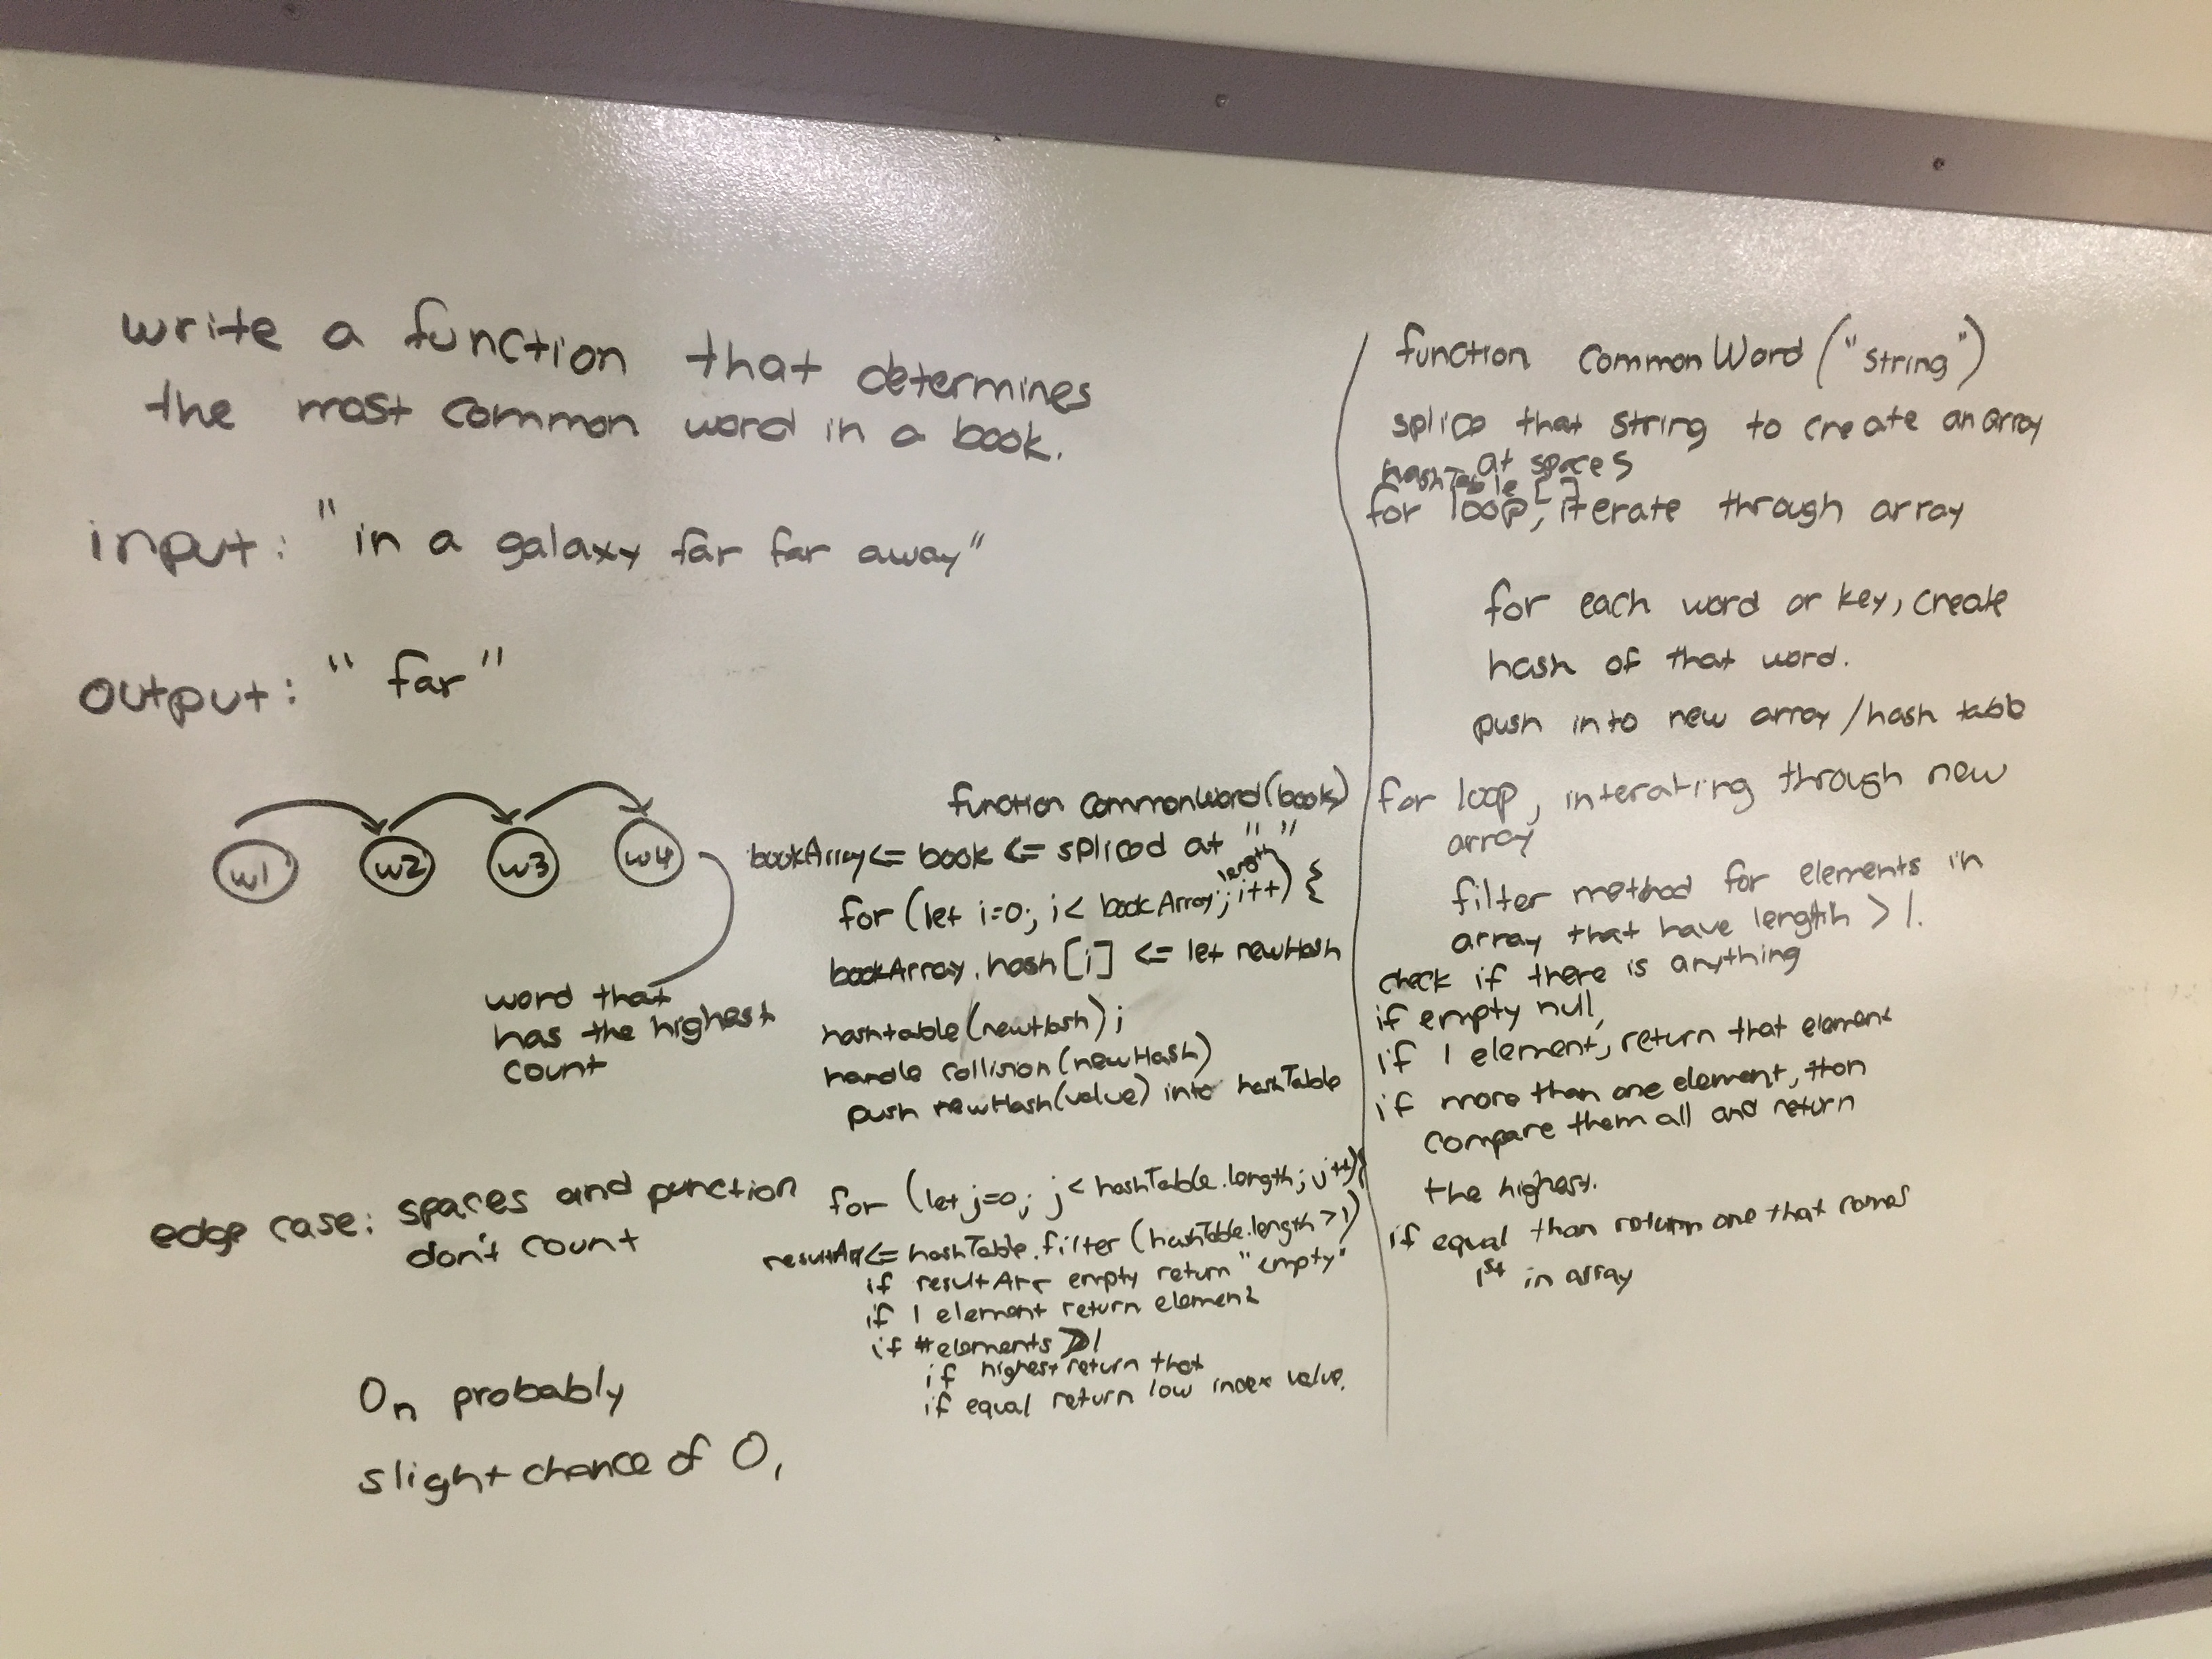 write a function that determines
the most common word in a book.
input: "in a galaxy far far away"
output: "far"
w1 w2 w3 w4
word that
has the highest
count
edge case: spaces and punction
don't count
On probably
slight chance of O,
function commonWord(book)
bookArray <= book <= spliced at " "
for (let i=0; i< bookArray length; i++) {
bookArray.hash[i] <= let newHash
hashtable(newHash);
handle collision(newHash)
push newHash(value) into hashTable
for (let j=0; j< hashTable.length; j++){
resultArr <= hashTable.filter(hashTable.length >1)
if resultArr empty return "empty"
if 1 element return element
if #elements >1
if highest return that
if equal return low index value.
function commonWord("string")
splice that string to create an array
at spaces
hashTable []
for loop, iterate through array
for each word or key, create
hash of that word.
push into new array/hash table
for loop, interating through new
array
filter method for elements in
array that have length >1.
check if there is anything
if empty null,
if 1 element, return that element
if more than one element, then
compare them all and return
the highest.
if equal than return one that comes
1st in array